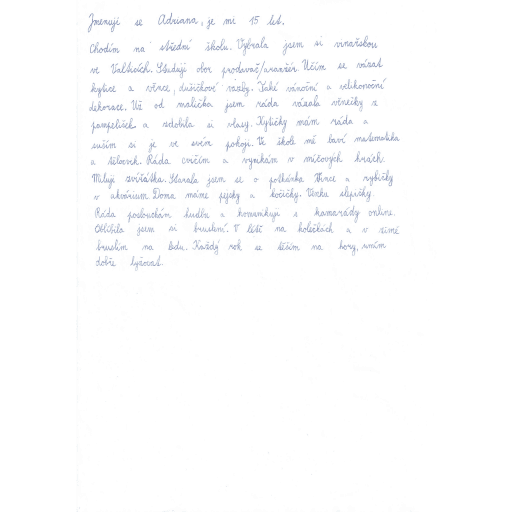 Jmenuji se Adriana, je mi 15 let.
Chodím na střední školu. Vybrala jsem si vinařskou
ve Valticích. Studuji obor prodavač/aranžér. Učím se vázat
kytice a věnce, dušičkové vazby. Také vánoční a velikonoční
dekorace. Už od malička jsem ráda vázala věnečky z
pampelišek a zdobila si vlasy. Kytičky mám ráda a
suším si je ve svém pokoji. Ve škole mě baví matematika
a tělocvik. Ráda cvičím a vynikám v míčových hrách.
Miluji zvířátka. Starala jsem se o potkánka Vince a rybičky
v akvárium. Doma máme pejsky a kočičky. Venku slepičky.
Ráda poslouchám hudbu a komunikuji s kamarády online.
Oblíbila jsem si bruslení. V létě na kolečkách a v zimě
bruslím na ledu. Každý rok se těším na hory, umím
dobře lyžovat.